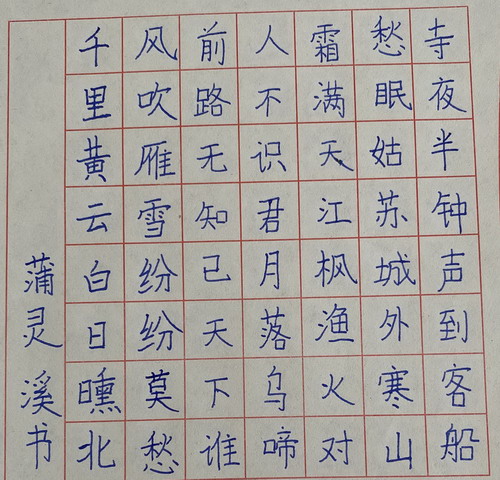 千里黄云白日曛北
风吹雁雪纷纷莫愁
前路无知己天下谁
人不识君月落乌啼
霜满天江枫渔火对
愁眠姑苏城外寒山
寺夜半钟声到客船
蒲灵溪书